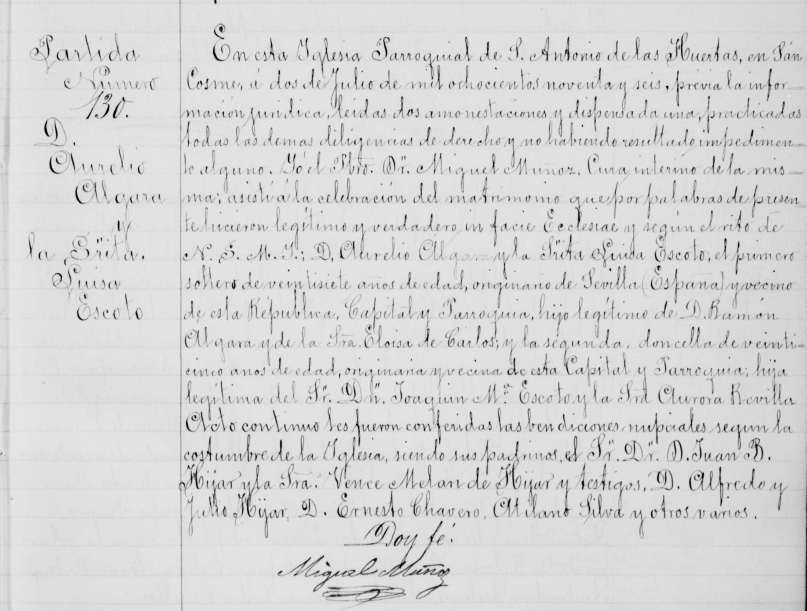 Partida
Número
130.
D.
Aurelio
Algara
y
la Srita.
Luisa
Escoto
En esta Iglesia Parroquial de S. Antonio de las Huertas, en San
Cosme, á dos de Julio de mil ochocientos noventa y seis, previa la infor-
mación juridica, leidas dos amonestaciones y dispensada una, practicadas
todas las demas diligencias de derecho y no habiendo resultado impedimen-
to alguno. Yó el Pbro. Dr. Miguel Muñoz, Cura interino de la mis-
ma; asistí á la celebración del matrimonio que por palabras de presen-
te hicieron legítimo y verdadero, in facie Ecclesiae y según el rito de
N. S. M. I.; D. Aurelio Algara y la Srita Luisa Escoto; el primero
soltero de veintisiete años de edad, originario de Sevilla (España) y vecino
de esta República, Capital y Parroquia, hijo legítimo de D. Ramón
Algara y de la Sra. Eloisa de Carlos; y la segunda, doncella de veinti-
cinco anos de edad, originaria y vecina de esta Capital y Parroquia; hija
legitima del Sr. Dn. Joaquin Ma. Escoto y la Sra Aurora Revilla
Acto continuo les fueron conferidas las bendiciones nupciales según la
costumbre de la Iglesia, siendo sus padrinos, el Sr. Dr. D. Juan B.
Hijar y la Sra. Vence Melan de Hijar y testigos, D. Alfredo y
Julio Hijar, D. Ernesto Chavero, Milano Silva y otros varios.
Doy fé.
Miguel Muñoz